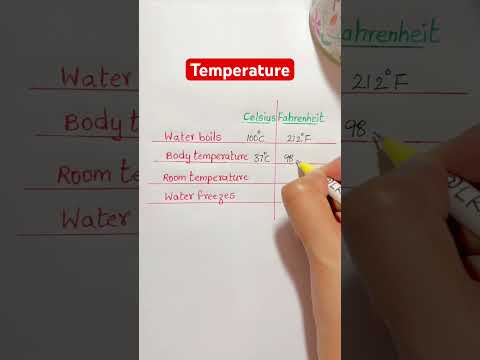 Temperature
Celsius Fahrenheit
Water boils 100°C 212°F
Body temperature 37°C 98
Room temperature
Water freezes
Water
Body
Room
Wat
ahrenheit
212°F
98